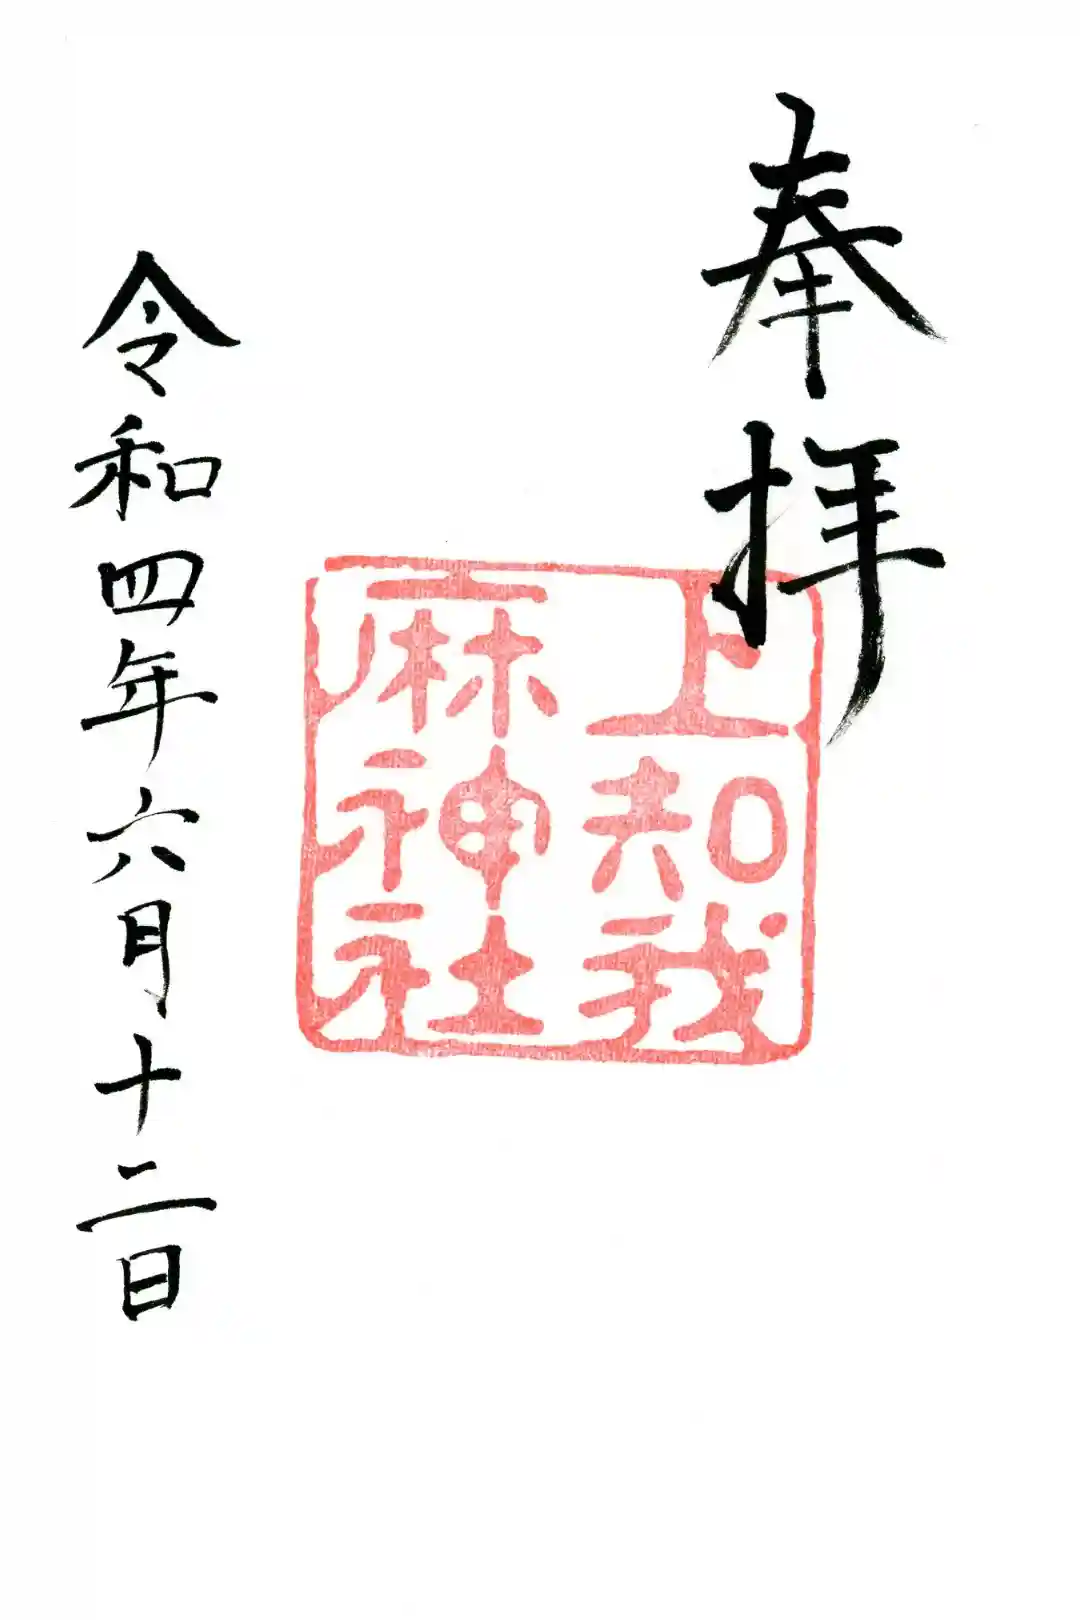 奉拝
上知我
麻神社
令和四年六月十二日